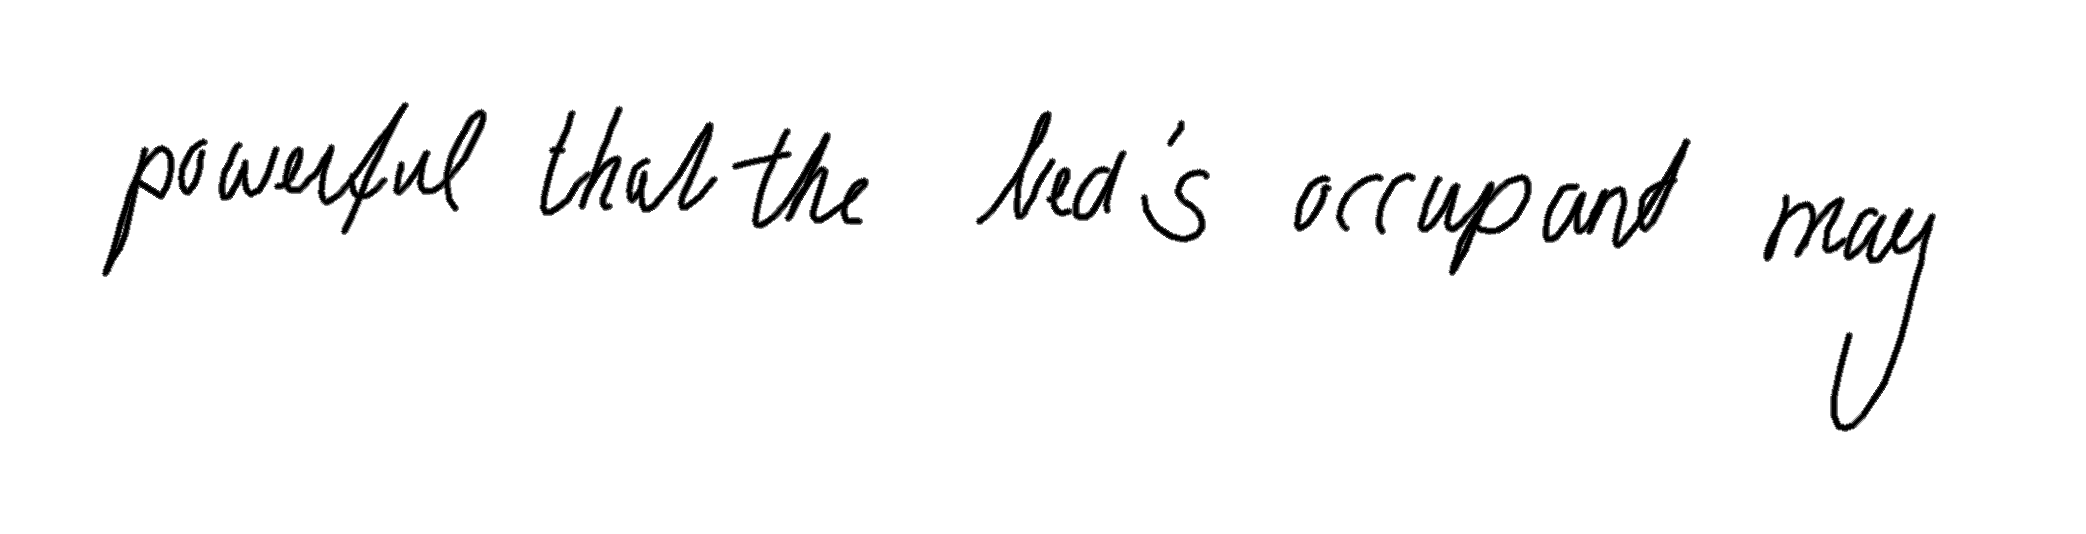 powerful that the bed's occupant may